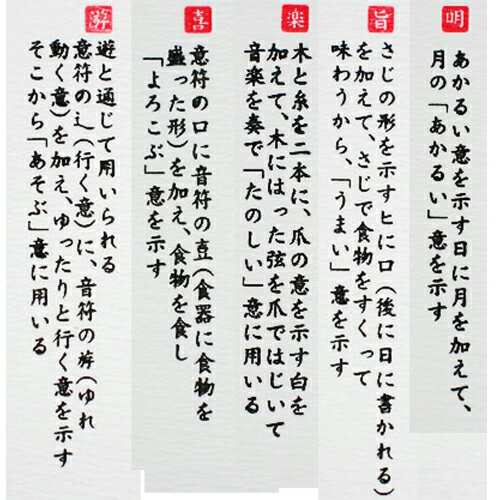 明
あかるい意を示す日に月を加えて、
月の「あかるい」意を示す
旨
さじの形を示すヒに口(後に日に書かれる)
を加えて、さじで食物をすくって
味わうから、「うまい」意を示す
楽
木と糸を二本に、爪の意を示す白を
加えて、木にはった弦を爪ではじいて
音楽を奏で「たのしい」意に用いる
喜
意符の口に音符の壴(食器に食物を
盛った形)を加え、食物を食し
「よろこぶ」意を示す
遊と通じて用いられる
意符の辶(行く意)に、音符の斿(ゆれ
動く意)を加え、ゆったりと行く意を示す
そこから「あそぶ」意に用いる